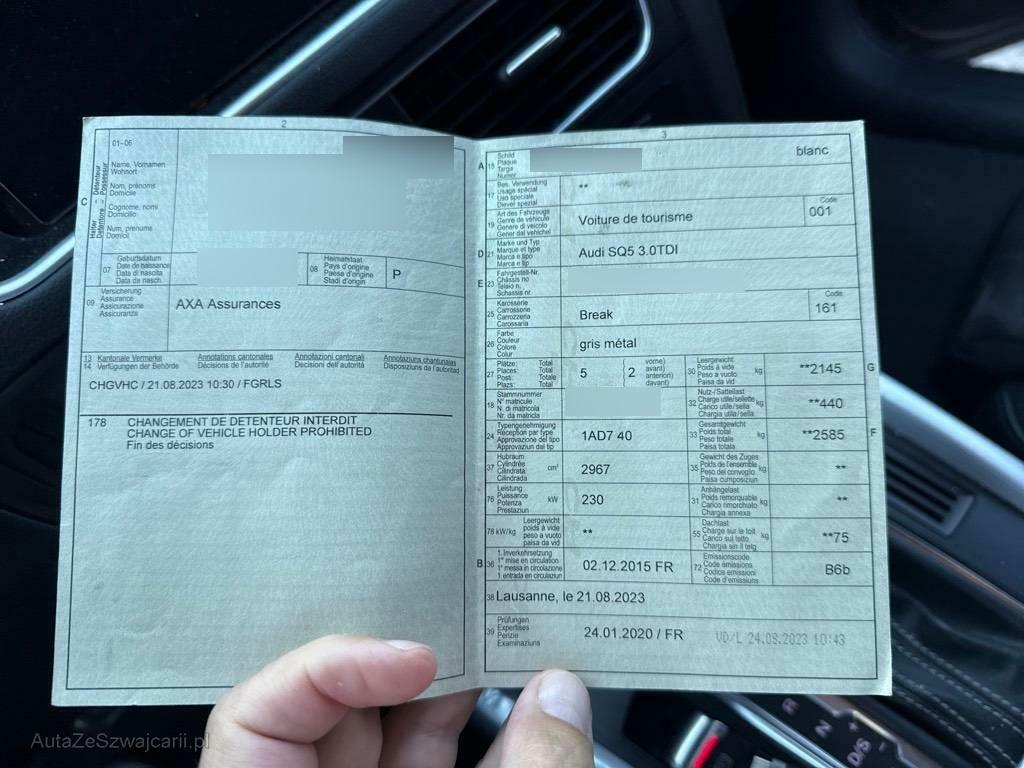 2
01-06
C
Halter
Détenteur
Detentore
Possessur
Name, Vornamen
Wohnort
Nom, prénoms
Domicile
Cognome, nomi
Domicilio
Num, prenums
Domicil
07
Geburtsdatum
Date de naissance
Data di nascita
Data da nasch.
08
Heimatstaat
Pays d'origine
Paese d'origine
Stadi d'origin
P
09
Versicherung
Assurance
Assicurazione
Assicuranza
AXA Assurances
13 Kantonale Vermerke Annotations cantonales Annotazioni cantonali Annotaziuns chantunalas
14 Verfügungen der Behörde Décisions de l'autorité Decisioni dell'autorità Disposiziuns da l'autoritad
CHGVHC / 21.08.2023 10:30 / FGRLS
178 CHANGEMENT DE DETENTEUR INTERDIT
CHANGE OF VEHICLE HOLDER PROHIBITED
Fin des décisions
3
A 15
Schild
Plaque
Targa
Numer
blanc
17
Bes. Verwendung
Usage spécial
Uso speciale
Diever spezial
**
19
Art des Fahrzeugs
Genre de véhicule
Genere di veicolo
Gener dal vehichel
Voiture de tourisme
Code
001
D 21
Marke und Typ
Marque et type
Marca e tipo
Marca e tip
Audi SQ5 3.0TDI
E 23
Fahrgestell-Nr.
Châssis no
Telaio n.
Schassis nr.
25
Karosserie
Carrosserie
Carrozzeria
Carossaria
Break
Code
161
26
Farbe
Couleur
Colore
Colur
gris métal
27
Plätze: Total
Places: Total
Posti: Totale
Plazs: Total
5
( vorne)
2 ( avant)
( anteriori)
( davant)
30
Leergewicht
Poids à vide
Peso a vuoto
Paisa da vid
kg
**2145
G
18
Stammnummer
N° matricule
N. di matricola
Nr. da matricla
32
Nutz-/Sattellast
Charge utile/sellette
Carico utile/sella
Chargia utila/sella
kg
**440
24
Typengenehmigung
Réception par type
Approvazione del tipo
Approvaziun dal tip
1AD7 40
33
Gesamtgewicht
Poids total
Peso totale
Paisa totala
kg
**2585
F
37
Hubraum
Cylindrée
Cilindrata
Cilindrada
cm³
2967
35
Gewicht des Zuges
Poids de l'ensemble
Peso del convoglio
Paisa cumposiziun
kg
**
76
Leistung
Puissance
Potenza
Prestaziun
kW
230
31
Anhängelast
Poids remorquable
Carico rimorchiato
Chargia annexa
kg
**
78 kW/kg
Leergewicht
poids à vide
peso a vuoto
paisa da vid
**
55
Dachlast
Charge sur le toit
Carico sul tetto
Chargia sin il tetg
kg
**75
B 36
1. Inverkehrsetzung
1re mise en circulation
1a messa in circolazione
1. entrada en circulaziun
02.12.2015 FR
72
Emissionscode
Code émissions
Codice emissioni
Code d'emissiuns
B6b
38 Lausanne, le 21.08.2023
39
Prüfungen
Expertises
Perizie
Examinaziuns
24.01.2020 / FR
VD/L 24.08.2023 10:43
R
N
D/S
AutaZeSzwajcarii.pl